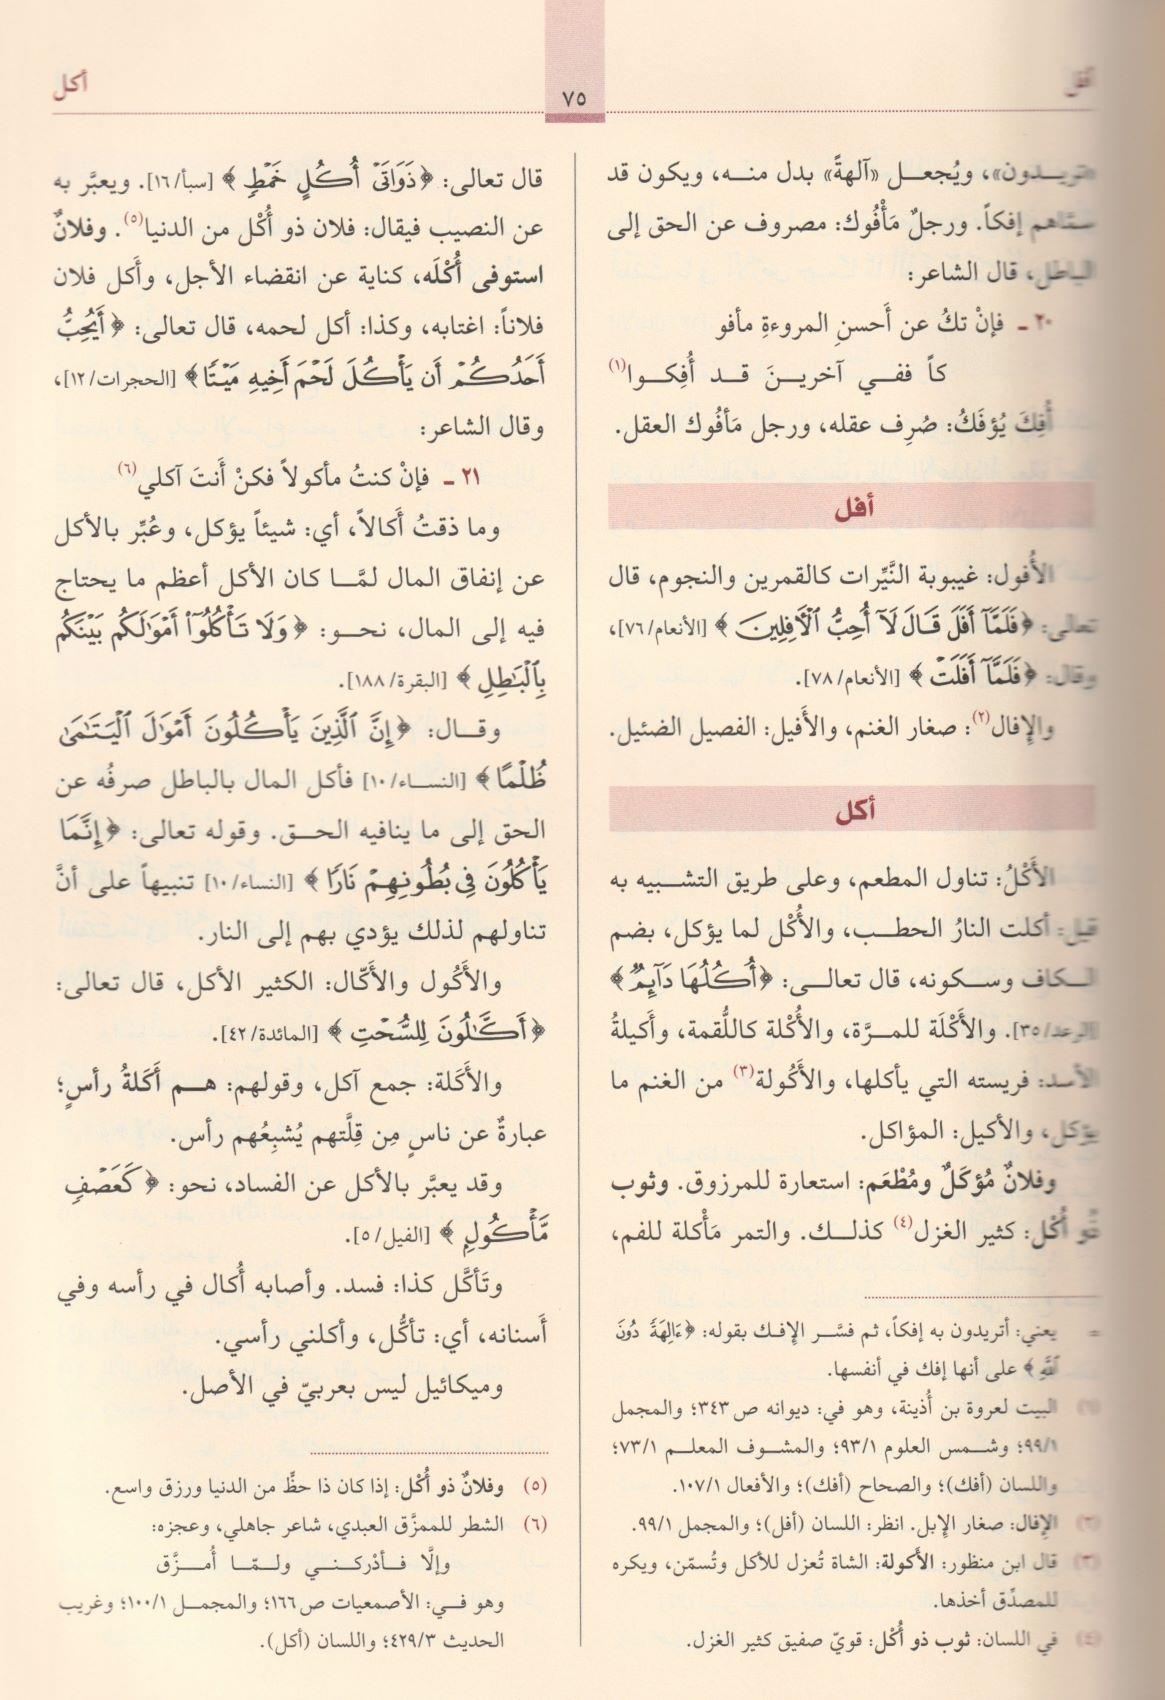 أفل
٧٥
أكل
«تريدون»، ويُجعل «آلهةً» بدل منه، ويكون قد
سمّاهم إفكاً. ورجلٌ مَأْفُوك: مصروف عن الحق إلى
الباطل، قال الشاعر:
٢٠ ـ فإنْ تكُ عن أَحسنِ المروءةِ مأفو
كاً ففي آخرينَ قد أُفِكوا(١)
أُفِكَ يُؤفَكُ: صُرِف عقله، ورجل مَأفُوك العقل.
أفل
الأُفول: غيبوبة النَّيِّرات كالقمرين والنجوم، قال
تعالى: ﴿فَلَمَّآ أَفَلَ قَالَ لَآ أُحِبُّ ٱلْأَفِلِينَ﴾ [الأنعام/٧٦]،
وقال: ﴿فَلَمَّآ أَفَلَتْ﴾ [الأنعام/٧٨].
والإفال(٢): صغار الغنم، والأَفيل: الفصيل الضئيل.
أكل
الأَكْلُ: تناول المطعم، وعلى طريق التشبيه به
قيل: أكلت النارُ الحطب، والأُكْل لما يؤكل، بضم
الكاف وسكونه، قال تعالى: ﴿أُكُلُهَا دَآئِمٌ﴾
[الرعد/٣٥]. والأَكْلَة للمرَّة، والأُكْلة كاللُّقمة، وأَكيلةُ
الأسد: فريسته التي يأكلها، والأَكُولة(٣) من الغنم ما
يؤكل، والأكيل: المؤاكل.
وفلانٌ مُؤكَلٌ ومُطْعَم: استعارة للمرزوق. وثوب
ذو أُكْل: كثير الغزل(٤) كذلك. والتمر مَأْكلة للفم،
= يعني: أتريدون به إفكاً، ثم فسَّر الإفك بقوله: ﴿ءَالِهَةً دُونَ
ٱللَّهِ﴾ على أنها إفك في أنفسها.
(١) البيت لعروة بن أُذينة، وهو في: ديوانه ص٣٤٣؛ والمجمل
٩٩/١؛ وشمس العلوم ٩٣/١؛ والمشوف المعلم ٧٣/١؛
واللسان (أفك)؛ والصحاح (أفك)؛ والأفعال ١٠٧/١.
(٢) الإفال: صغار الإبل. انظر: اللسان (أفل)؛ والمجمل ٩٩/١.
(٣) قال ابن منظور: الأكولة: الشاة تُعزل للأكل وتُسمّن، ويكره
للمصدِّق أخذها.
(٤) في اللسان: ثوب ذو أُكْل: قويّ صفيق كثير الغزل.
قال تعالى: ﴿ذَوَاتَىْ أُكُلٍ خَمْطٍ﴾ [سبأ/١٦]. ويعبَّر به
عن النصيب فيقال: فلان ذو أُكْل من الدنيا(٥). وفلانٌ
استوفى أُكْلَه، كناية عن انقضاء الأجل، وأَكل فلان
فلاناً: اغتابه، وكذا: أكل لحمه، قال تعالى: ﴿أَيُحِبُّ
أَحَدُكُمْ أَن يَأْكُلَ لَحْمَ أَخِيهِ مَيْتًا﴾ [الحجرات/١٢]،
وقال الشاعر:
٢١ ـ فإنْ كنتُ مأكولاً فكنْ أَنتَ آكلي(٦)
وما ذقتُ أَكالاً، أي: شيئاً يؤكل، وعُبِّر بالأكل
عن إنفاق المال لمَّا كان الأكل أعظم ما يحتاج
فيه إلى المال، نحو: ﴿وَلَا تَأْكُلُوٓا۟ أَمْوَٰلَكُم بَيْنَكُم
بِٱلْبَٰطِلِ﴾ [البقرة/١٨٨].
وقال: ﴿إِنَّ ٱلَّذِينَ يَأْكُلُونَ أَمْوَٰلَ ٱلْيَتَٰمَىٰ
ظُلْمًا﴾ [النساء/١٠] فأكل المال بالباطل صرفُه عن
الحق إلى ما ينافيه الحق. وقوله تعالى: ﴿إِنَّمَا
يَأْكُلُونَ فِى بُطُونِهِمْ نَارًا﴾ [النساء/١٠] تنبيهاً على أنَّ
تناولهم لذلك يؤدي بهم إلى النار.
والأَكُول والأَكّال: الكثير الأكل، قال تعالى:
﴿أَكَّٰلُونَ لِلسُّحْتِ﴾ [المائدة/٤٢].
والأَكَلة: جمع آكل، وقولهم: هم أَكَلةُ رأسٍ؛
عبارةٌ عن ناسٍ مِن قِلَّتهم يُشبِعُهم رأس.
وقد يعبَّر بالأكل عن الفساد، نحو: ﴿كَعَصْفٍ
مَّأْكُولٍ﴾ [الفيل/٥].
وتَأكَّل كذا: فسد. وأصابه أُكال في رأسه وفي
أَسنانه، أي: تأكُّل، وأكلني رأسي.
وميكائيل ليس بعربيّ في الأصل.
(٥) وفلانٌ ذو أُكْل: إذا كان ذا حظِّ من الدنيا ورزق واسع.
(٦) الشطر للممزَّق العبدي، شاعر جاهلي، وعجزه:
وإلَّا فأدْركني ولمّا أُمزَّق
وهو في: الأصمعيات ص١٦٦؛ والمجمل ١٠٠/١؛ وغريب
الحديث ٤٢٩/٣؛ واللسان (أكل).